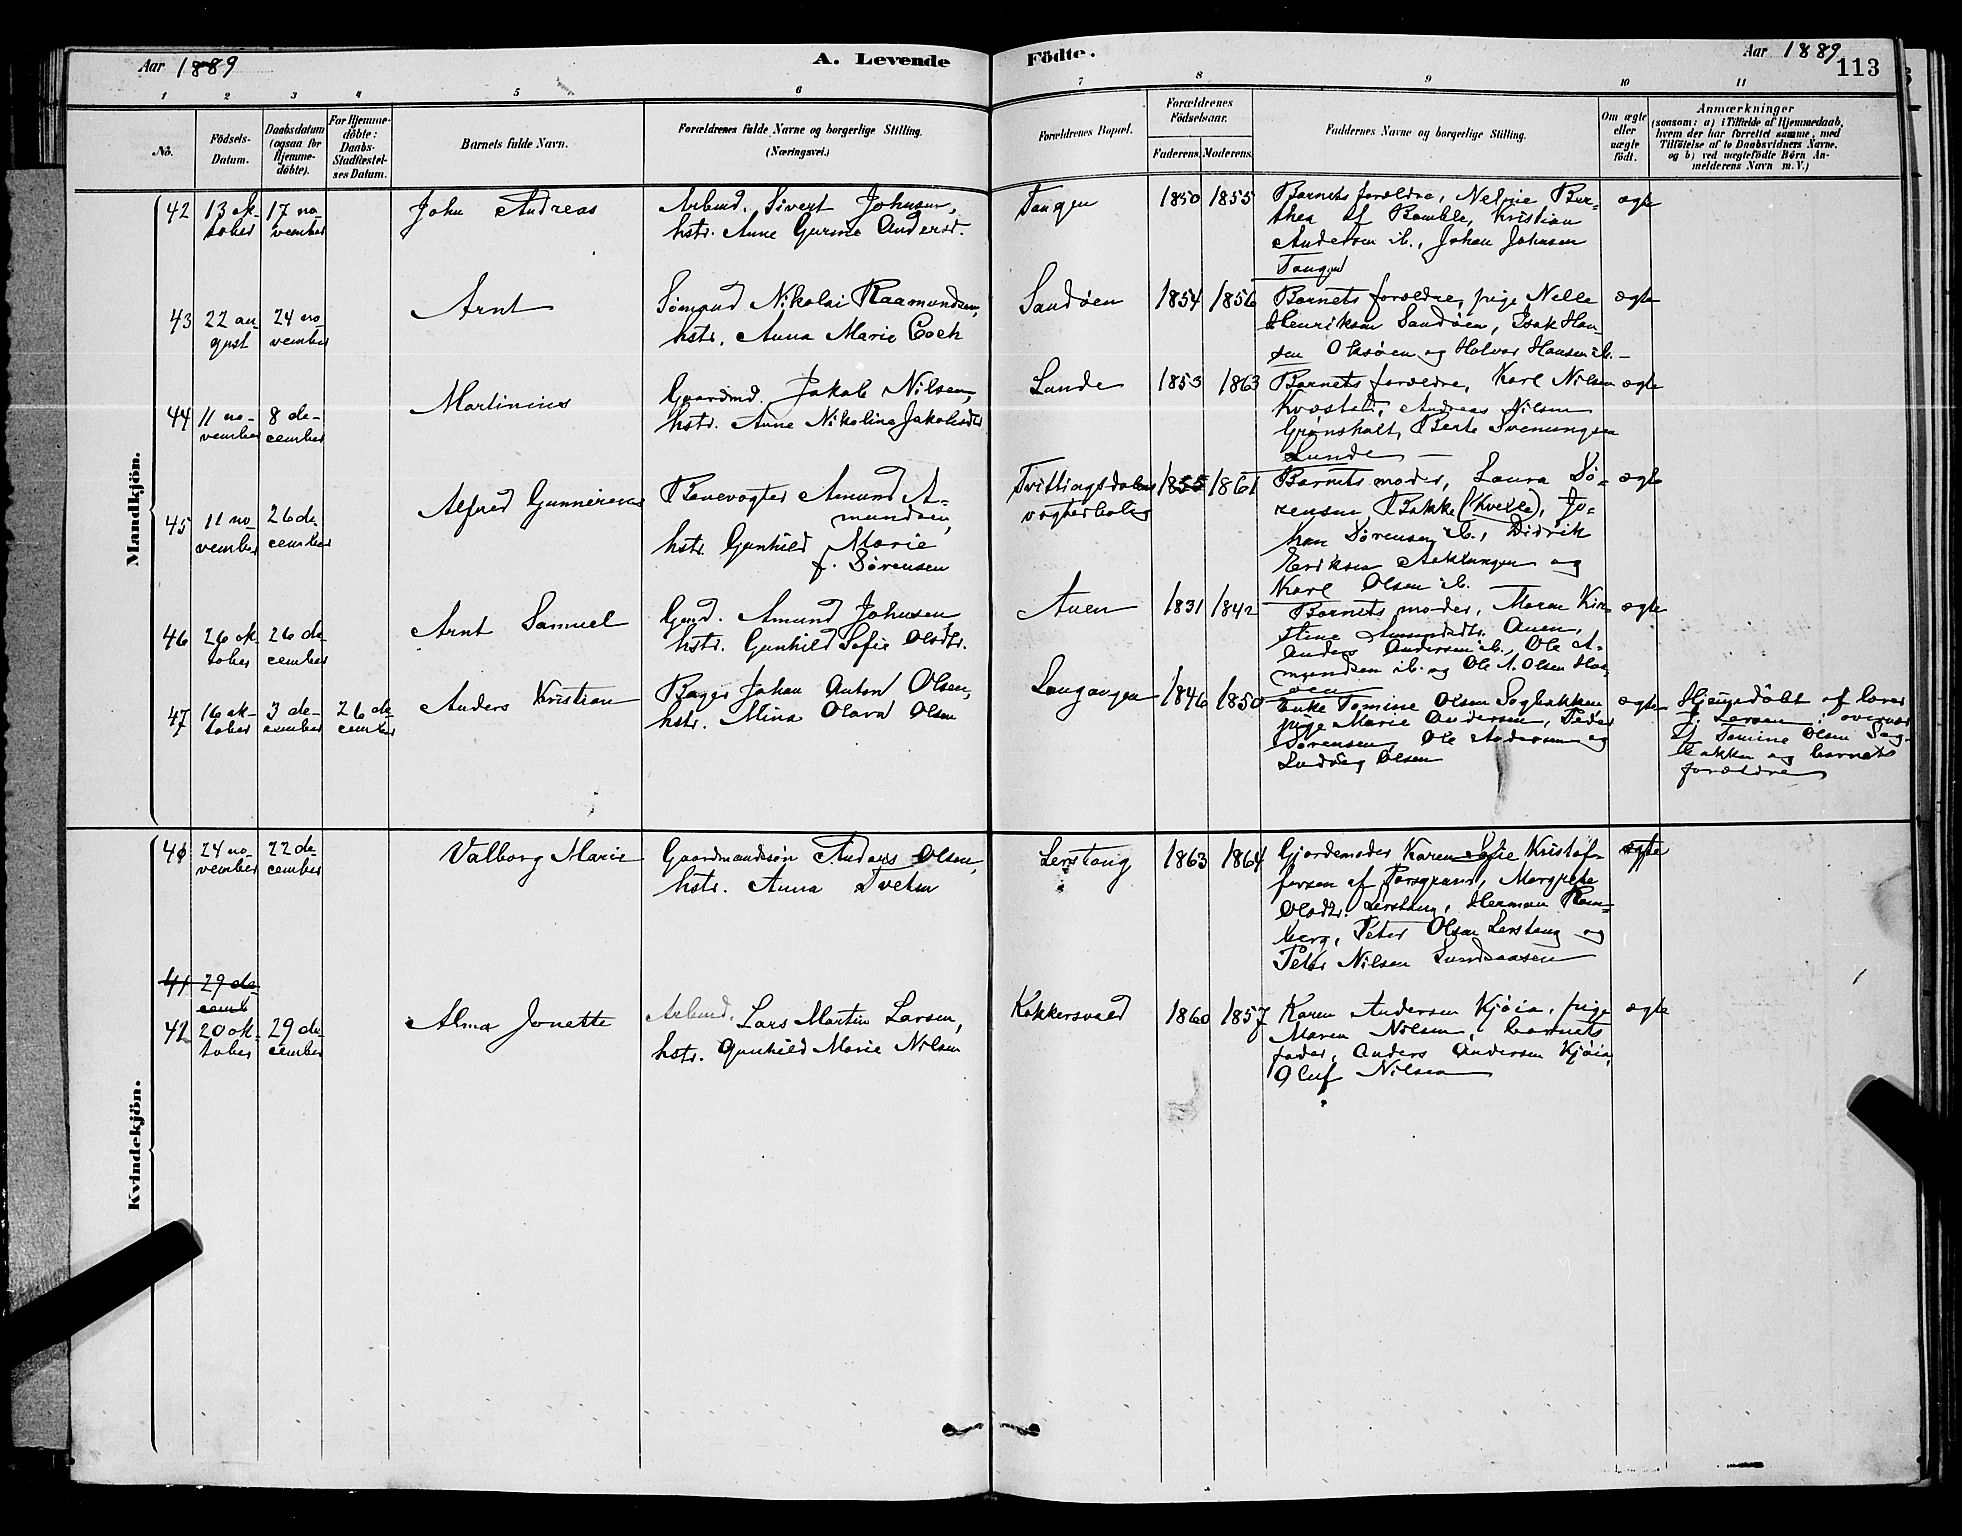 Aar 1889
A. Levende
Födte.
Aar 1889
113
1 2 3 4 5 6 7 8 9 10 11
No.
Födsels-
Datum.
Daabsdatum
(ogsaa for
Hjemme-
döbte).
For Hjemme-
döbte:
Daabs-
Stadfæstel-
ses Datum.
Barnets fulde Navn.
Forældrenes fulde Navne og borgerlige Stilling.
(Næringsvei.)
Forældrenes Bopæl.
Forældrenes
Födselsaar.
Faderens. Moderens.
Faddernes Navne og borgerlige Stilling.
Om ægte
eller
uægte
födt.
Anmærkninger
(saasom: a) i Tilfælde af Hjemmedaab,
hvem der har forrettet samme, med
Tilföielse af to Daabsvidners Navne,
og b) ved uægtefödte Börn An-
melderens Navn m. V.)
Mandkjön.
42
13 ok-
tober
17 no-
vember
John Andreas
Arbmd. Sivert Johnsen,
hstr. Anne Gurine Andersd.
Tangen
1850 1855
Barnets forældre, Neline Ber-
thea af Bamble, Kristian
Andersen ib., Johan Johnsen
Tangen
ægte
43
22 au-
gust
24 no-
vember
Arnt
Sömand Nikolai Raamundsen,
hstr. Anna Marie Coch
Sandöen
1854 1856
Barnets forældre, pige Nelle
Henriksen Sandöen, Isak Han-
sen Oksöen og Halvor Hansen ib. –
ægte
44
11 no-
vember
8 de-
cember
Martinius
Gaardmd. Jakob Nilsen,
hstr. Anne Nikoline Jakobsdtr
Lunde
1853 1863
Barnets forældre, Karl Nilsen
Kvæstad, Andreas Nilsen
Grönsholt, Berte Svenungsen
Lunde –
ægte
45
11 no-
vember
26 de-
cember
Alfred Gunnerius
Banevogter Amund A-
mundsen,
hstr. Gunhild Marie
f. Sörensen
Tvitlingsdalens
vogterbolig
1855 1861
Barnets moder, Laura Sö-
rensen Bakke (Kvelle), Jo-
han Sörensen ib., Didrik
Eriksen Aaklungen og
Karl Olsen ib.
ægte
46
26 ok-
tober
26 de-
cember
Arnt Samuel
Gmd. Amund Johnsen
hstr. Gunhild Sofie Olsdtr.
Auen
1831 1842
Barnets moder, Maren Kir-
stine Amundsdtr. Auen,
Anders Andersen ib., Ole A-
mundsen ib. og Ole A. Olsen
ægte
47
16 ok-
tober
3 de-
cember
26 de-
cember
Anders Kristian
Bager Johan Anton Olsen,
hstr. Mina Olava Olsen
Langangen
1846 1850
Enke Tomine Olsen Sagbakken
pige Marie Andersen, Peder
Sörensen, Ole Andersen og
Ludvig Olsen
ægte
Hjemmedöbt af lærer
J. Larsen i overvær
af Tomine Olsen Sag-
bakken og barnets
forældre
Kvindekjön.
40
24 no-
vember
22 de-
cember
Valborg Marie
Gaardmandssön Anders Olsen,
hstr. Anna Tveten
Lerstang
1863 1864
Gjordemoder Karen Sofie Kristof-
fersen af Porsgrund, Margrethe
Olsdtr. Lerstang, Herman Ram-
berg, Peter Olsen Lerstang og
Peter Nilsen Sundsaasen
ægte
41 29 de-
cemb
42
20 ok-
tober
29 de-
cember
Alma Jonette
Arbmd. Lars Martin Larsen,
hstr. Gunhild Marie Nilsen
Kokkersvold
1860 1857
Karen Andersen Kjöia, pige
Maren Nilsen, barnets
fader, Anders Andersen Kjöia,
Oluf Nilsen
ægte